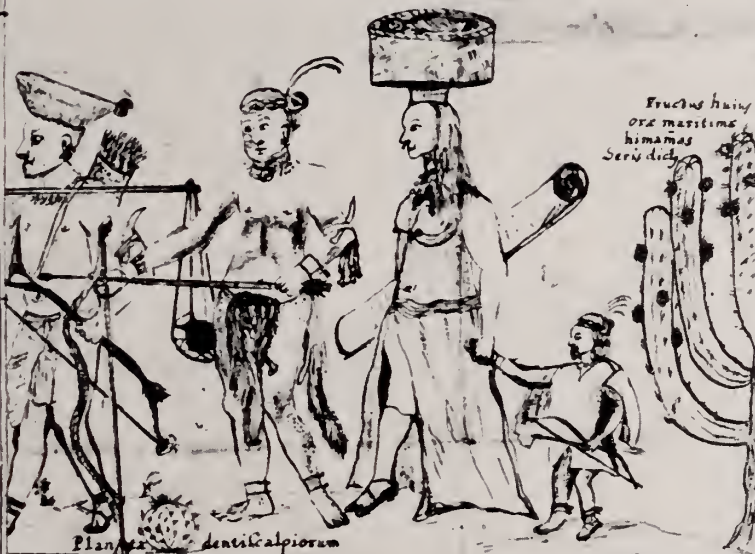 Fructus huius
oræ maritimæ
himamas
Seris dict
Planta dentiscalpiorum